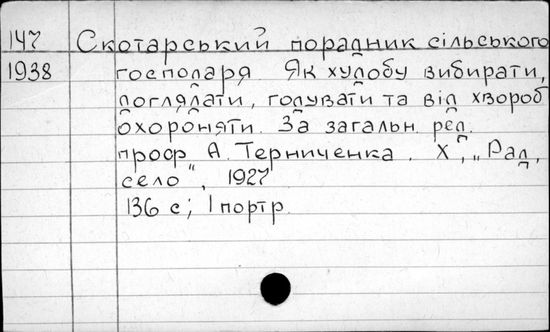 147 Скотарський порадник сільського
1938 господаря. Як худобу вибирати,
доглядати, годувати та від хвороб
охороняти. За загальн. ред.
проф. А. Терниченка. Х., „Рад.
село", 1927
136 с; 1 портр.